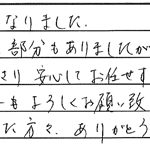 なりました.
部分もありましたが
さり 安心してお任せす
もよろしくお願い致
た方々、ありがとう